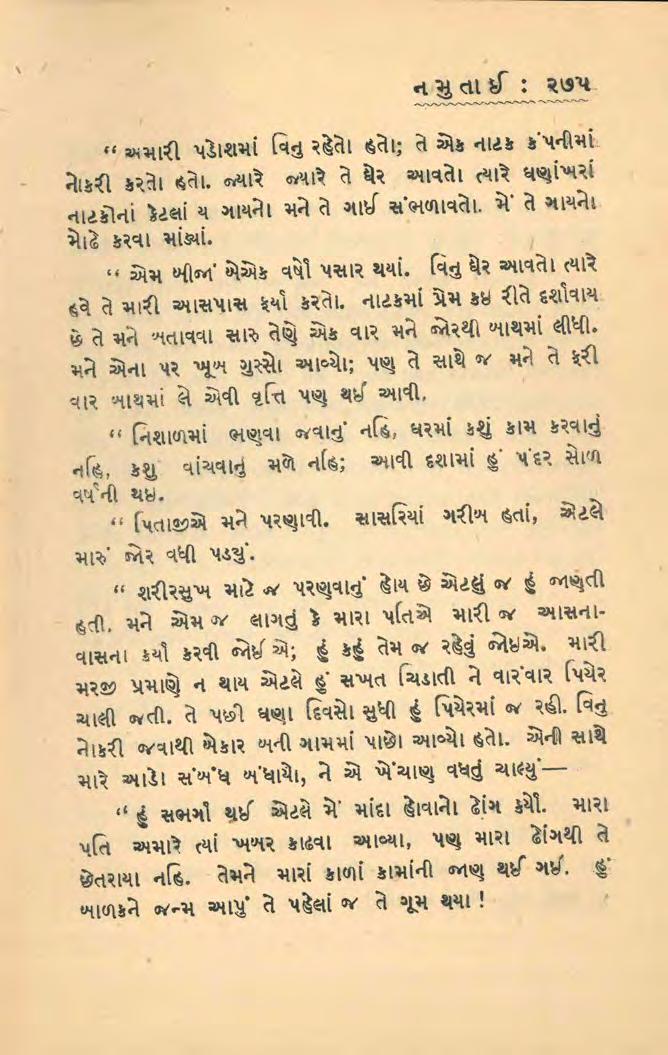 નમુતાઈ : ૨૭૫
“ અમારી પડોશમાં વિનુ રહેતો હતો; તે એક નાટક કંપનીમાં
નોકરી કરતો હતો. જ્યારે જ્યારે તે ઘેર આવતો ત્યારે ઘણાંખરાં
નાટકોનાં કેટલાં ય ગાયનો મને તે ગાઈ સંભળાવતો. મેં તે ગાયનો
મોઢે કરવા માંડ્યાં.
“ એમ બીજાં બેએક વર્ષો પસાર થયાં. વિનુ ઘેર આવતો ત્યારે
હવે તે મારી આસપાસ ફર્યા કરતો. નાટકમાં પ્રેમ કઇ રીતે દર્શાવાય
છે તે મને બતાવવા સારુ તેણે એક વાર મને જોરથી બાથમાં લીધી.
મને એના પર ખૂબ ગુસ્સો આવ્યો; પણ તે સાથે જ મને તે ફરી
વાર બાથમાં લે એવી વૃત્તિ પણ થઈ આવી.
“ નિશાળમાં ભણવા જવાનું નહિ, ઘરમાં કશું કામ કરવાનું
નહિ, કશુ વાંચવાનું મળે નહિ; આવી દશામાં હું પંદર સોળ
વર્ષની થઇ.
“ પિતાજીએ મને પરણાવી. સાસરિયાં ગરીબ હતાં, એટલે
મારું જોર વધી પડયું.
“ શરીરસુખ માટે જ પરણવાનું હોય છે એટલું જ હું જાણતી
હતી. મને એમ જ લાગતું કે મારા પતિએ મારી જ આસના-
વાસના કર્યા કરવી જોઈએ; હું કહું તેમ જ રહેવું જોઇએ. મારી
મરજી પ્રમાણે ન થાય એટલે હું સખત ચિડાતી ને વારંવાર પિયેર
ચાલી જતી. તે પછી ઘણા દિવસો સુધી હું પિયેરમાં જ રહી. વિનુ
નોકરી જવાથી બેકાર બની ગામમાં પાછો આવ્યો હતો. એની સાથે
મારે આડો સંબંધ બંધાયો, ને એ ખેંચાણ વધતું ચાલ્યું—
“ હું સભર્ગા થઈ એટલે મેં માંદા હોવાનો ઢોંગ કર્યો. મારા
પતિ અમારે ત્યાં ખબર કાઢવા આવ્યા, પણ મારા ઢોંગથી તે
છેતરાયા નહિ. તેમને મારાં કાળાં કામાંની જાણ થઈ ગઈ. હું
બાળકને જન્મ આપું તે પહેલાં જ તે ગૂમ થયા !